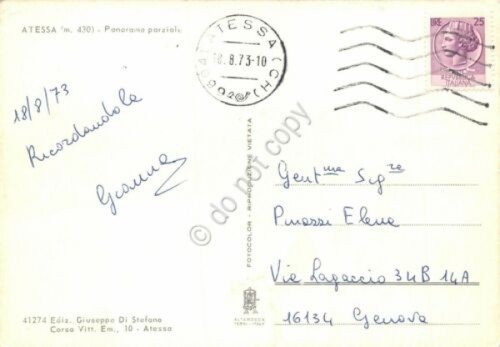 ATESSA (m. 430) - Panorama parziale
ATESSA (CH)
18.8.73-10
LIRE 25
REPUBBLICA
ITALIANA
18/8/73
Ricordandola
Gianna
Gent.ma Sig.ra
Pinassi Elena
Via Lagaccio 34B 14A
16134 Genova
FOTOCOLOR - RIPRODUZIONE VIETATA
do not copy
41274 Ediz. Giuseppe Di Stefano
Corso Vitt. Em., 10 - Atessa